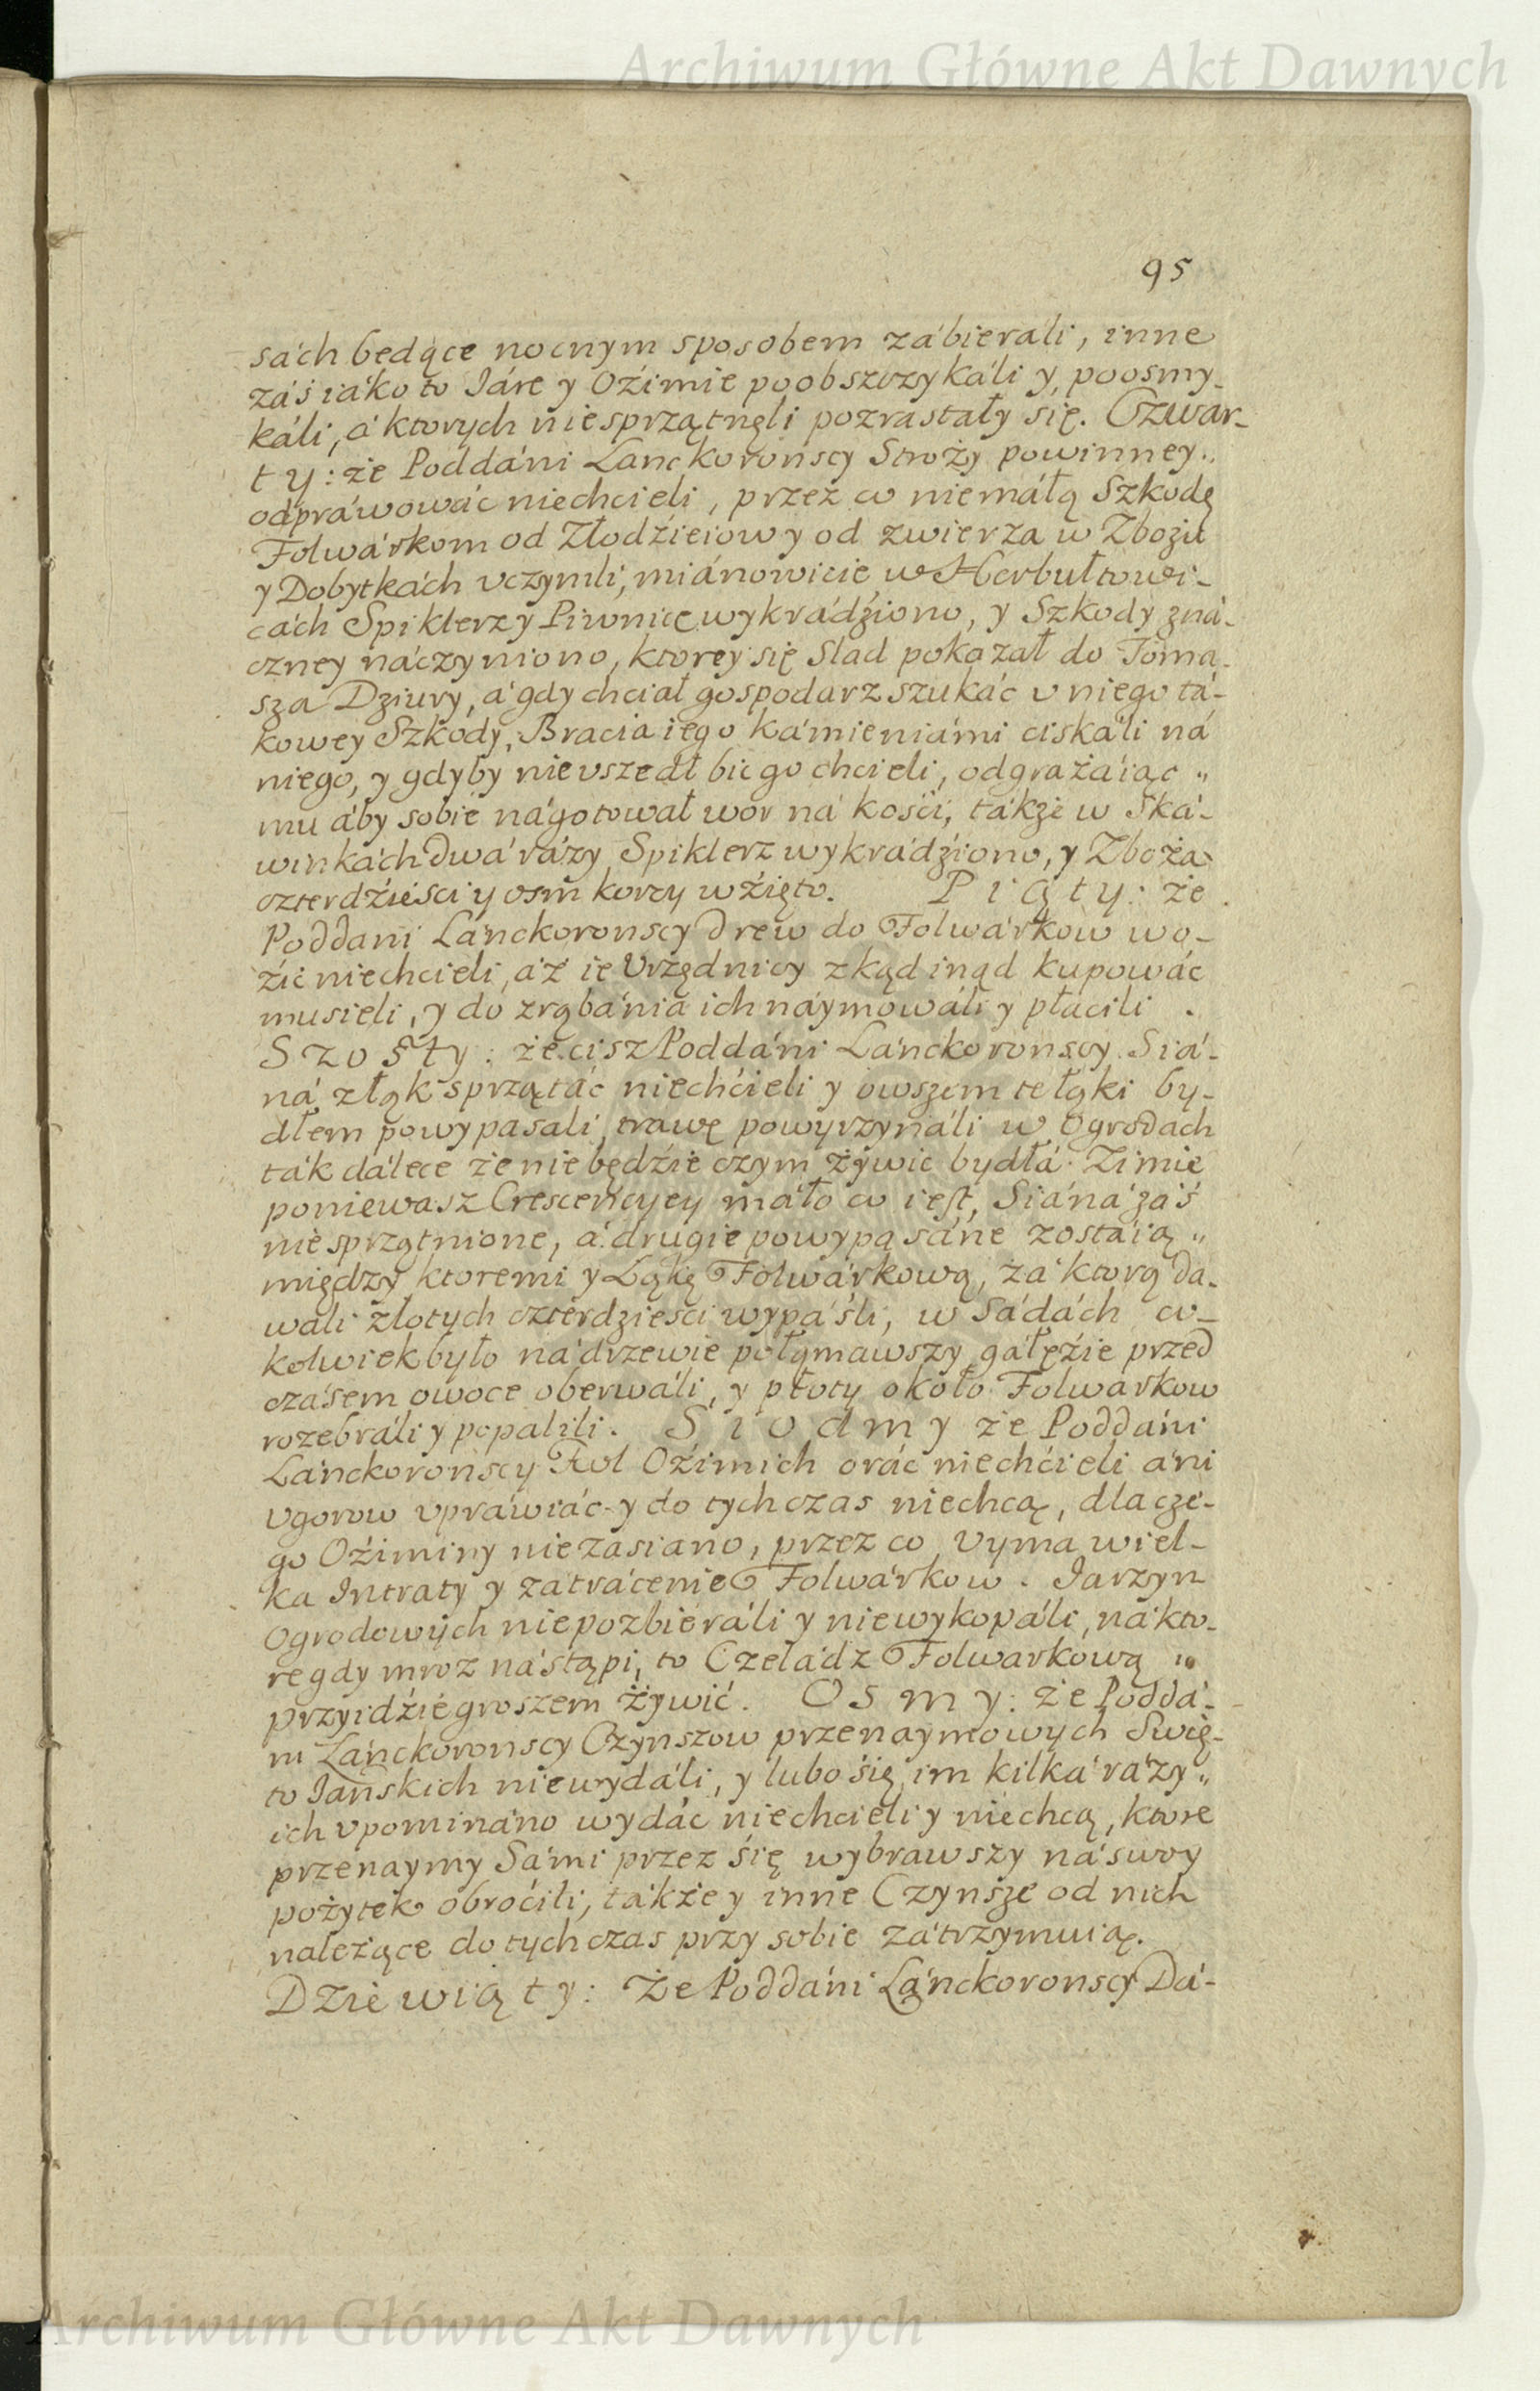 Archiwum Główne Akt Dawnych
95
sách będące nocnym sposobem zábieráli, inne
záś iáko to Iáre y Oźimie poobszczykáli y poosmy-
káli, á ktorych niesprzątnęli pozrastały się. Czwar-
ty: że Poddáni Lanckoronscy Stroży powinney„
odpráwowáć niechcieli, przez co niemáłą Szkodę
Folwárkom od Złodźieiow y od zwierza w Zbożu
y Dobytkách vczynili, miánowicie w Herbułtowi-
cách Spiklerz y Piwnicę wykrádźiono, y Szkody zná-
czney náczyniono, ktorey się Slad pokazał do Toma-
sza Dziury, á gdy chciał gospodarz szukáć v niego tá-
kowey Szkody, Bracia iego kámieniámi ciskáli ná
niego, y gdyby nievszedł bić go chcieli, odgrażáiąc „
mu áby sobie nágotował wor ná kości, tákże w Ská-
winkách dwá rázy Spiklerz wykrádźiono, y Zboża
czterdźieści y osm korcy wźięto. Piąty: że
Poddani Lánckoronscy drew do Folwárkow wo-
źić niechcieli, áż ie Vrzędnicy zkąd inąd kupowáć
musieli, y do zrąbánia ich náymowáli y płácili .
Szosty: że cisz Poddáni Lánckoronscy Siá-
ná z łąk sprzątáć niechćieli y owszem te łąki by-
dłem powypasali, trawę powyrzynáli w Ogrodach
ták dálece że niebędźie czym żywić bydłá Zimie
poniewasz Crescencyey máło co iest, Siáná záś
niesprzątnione, á drugie powypasáne zostáią „
między ktoremi y Łąkę Folwárkową, zá ktorą da-
wali złotych czterdzieści wypáśli, w Sádách co-
kolwiek było ná drzewie połomawszy gáłęźie przed
czásem owoce oberwáli, y płoty około Folwarkow
rozebráli y popalili. Siodmy że Poddáni
Lánckoronscy Rol Oźimich oráć niechćieli áni
Vgorow vpráwiáć y do tych czas niechcą, dla cze-
go Oźiminy niezasiano, przez co Vyma wiel-
ka Intraty y zatrácenie Folwárkow. Iarzyn
Ogrodowych niepozbieráli y niewykopáli, ná kto-
re gdy mroz nástąpi, to Czeladz Folwarkową „
przyidźie groszem żywić. Osmy: że Poddá-
ni Lánckoronscy Czynszow przenaymowych Swię-
to Iáńskich niewydáli, y lubo się im kilká rázy „
ich vpomináno wydáć niechcieli y niechcą, ktore
przenaymy Sámi przez się wybrawszy ná swoy
pożytek obroćili, tákże y inne Czynsze od nich
należące do tych czas przy sobie zátrzymuią.
Dziewiąty: Że Poddáni Lánckoronscy Dá-
Archiwum Główne Akt Dawnych